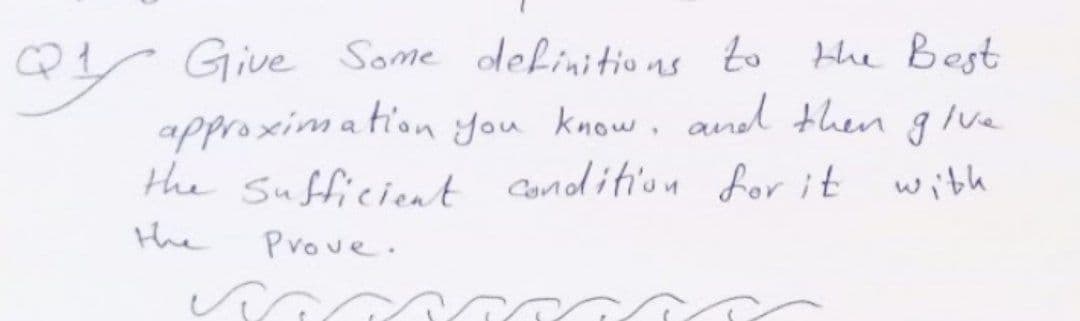 Q1 Give Some definitions to the Best
approximation you know. and then give
the sufficient condition for it with
the Prove.